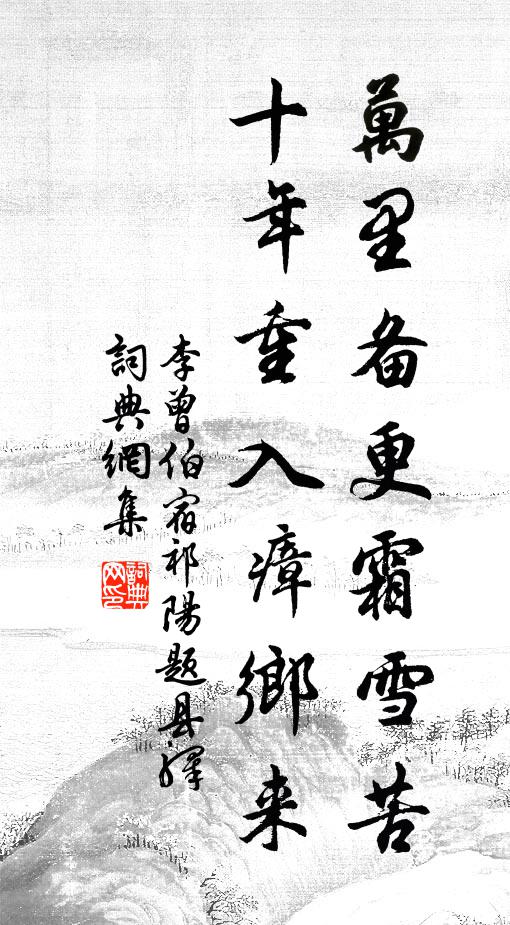 萬里备更霜雪苦
十年重入瘴鄉来
李曾伯宿祁陽題县驛
詞典網集
詞典网印